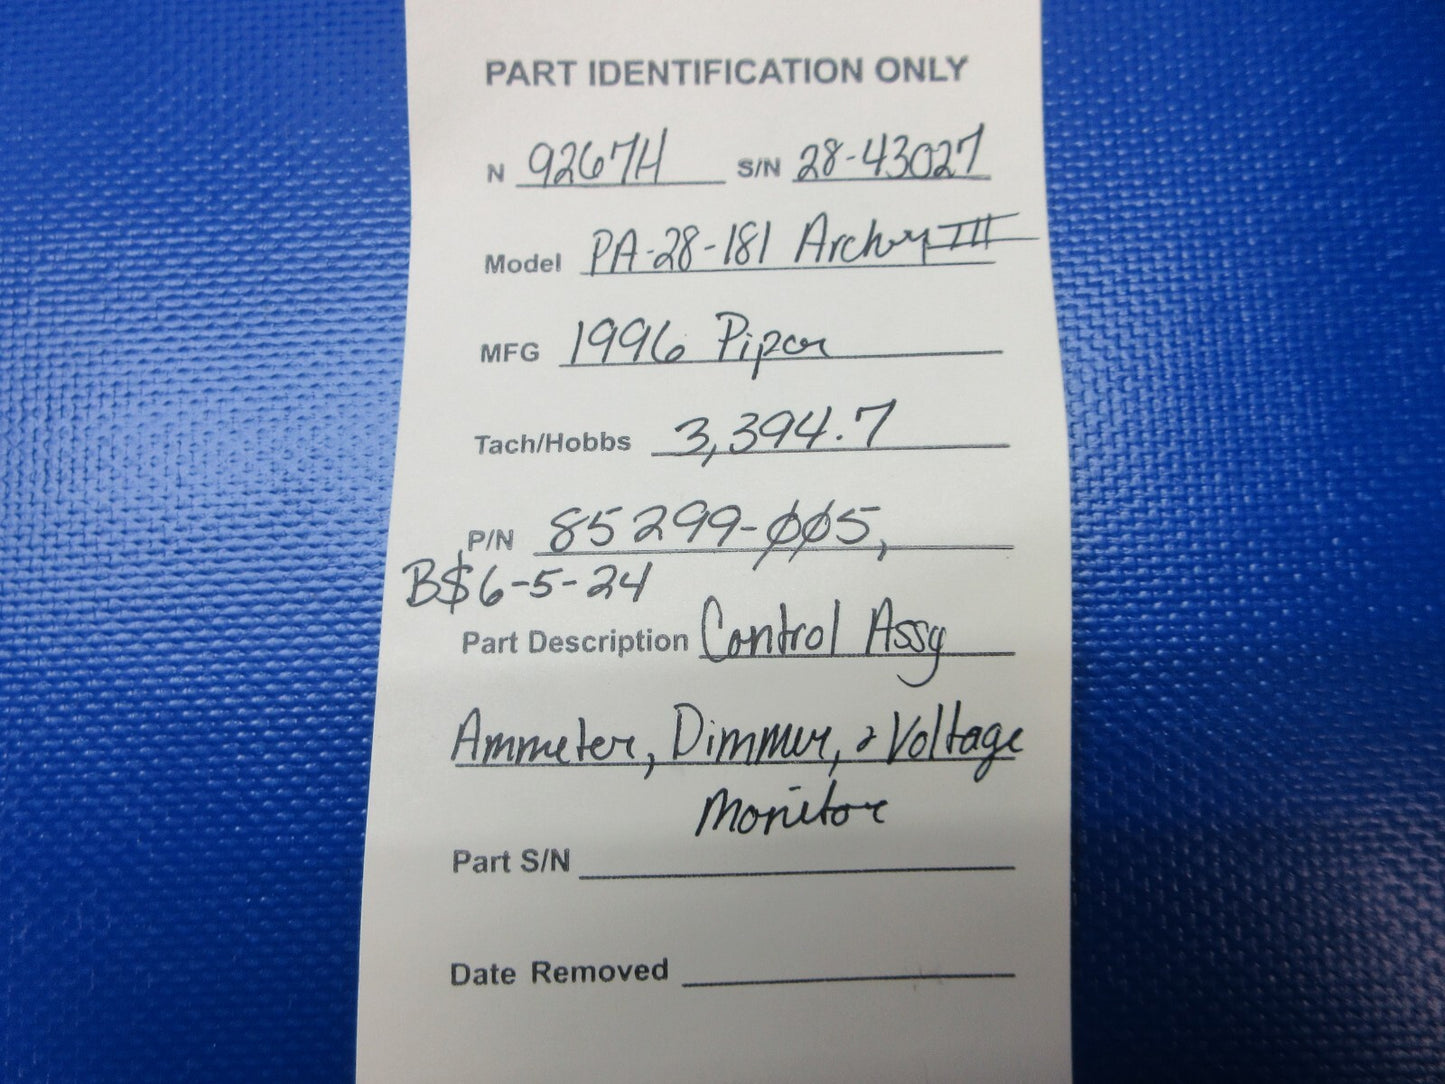 PART IDENTIFICATION ONLY
N 9267H S/N 28-43027
Model PA-28-181 Archer III
MFG 1996 Piper
Tach/Hobbs 3,394.7
P/N 85299-005,
B$6-5-24
Part Description Control Assy
Ammeter, Dimmer, & Voltage
Monitor
Part S/N
Date Removed